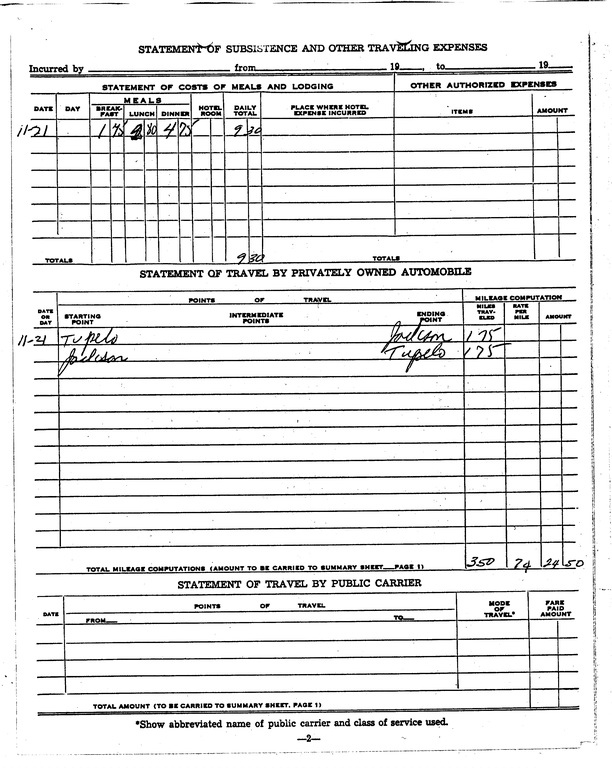 STATEMENT OF SUBSISTENCE AND OTHER TRAVELING EXPENSES
Incurred by from 19 , to 19
STATEMENT OF COSTS OF MEALS AND LODGING OTHER AUTHORIZED EXPENSES
MEALS
DATE DAY BREAK-FAST LUNCH DINNER HOTEL ROOM DAILY TOTAL PLACE WHERE HOTEL EXPENSE INCURRED ITEMS AMOUNT
11-21 1 75 2 80 4 75 9 30
TOTALS 9 30 TOTALS
STATEMENT OF TRAVEL BY PRIVATELY OWNED AUTOMOBILE
POINTS OF TRAVEL MILEAGE COMPUTATION
DATE OR DAY STARTING POINT INTERMEDIATE POINTS ENDING POINT MILES TRAV-ELED RATE PER MILE AMOUNT
11-21 Tupelo Jackson 175
Jackson Tupelo 175
TOTAL MILEAGE COMPUTATIONS (AMOUNT TO BE CARRIED TO SUMMARY SHEET PAGE 1) 350 7¢ 24 50
STATEMENT OF TRAVEL BY PUBLIC CARRIER
DATE POINTS OF TRAVEL MODE OF TRAVEL* FARE PAID AMOUNT
FROM TO
TOTAL AMOUNT (TO BE CARRIED TO SUMMARY SHEET, PAGE 1)
*Show abbreviated name of public carrier and class of service used.
—2—